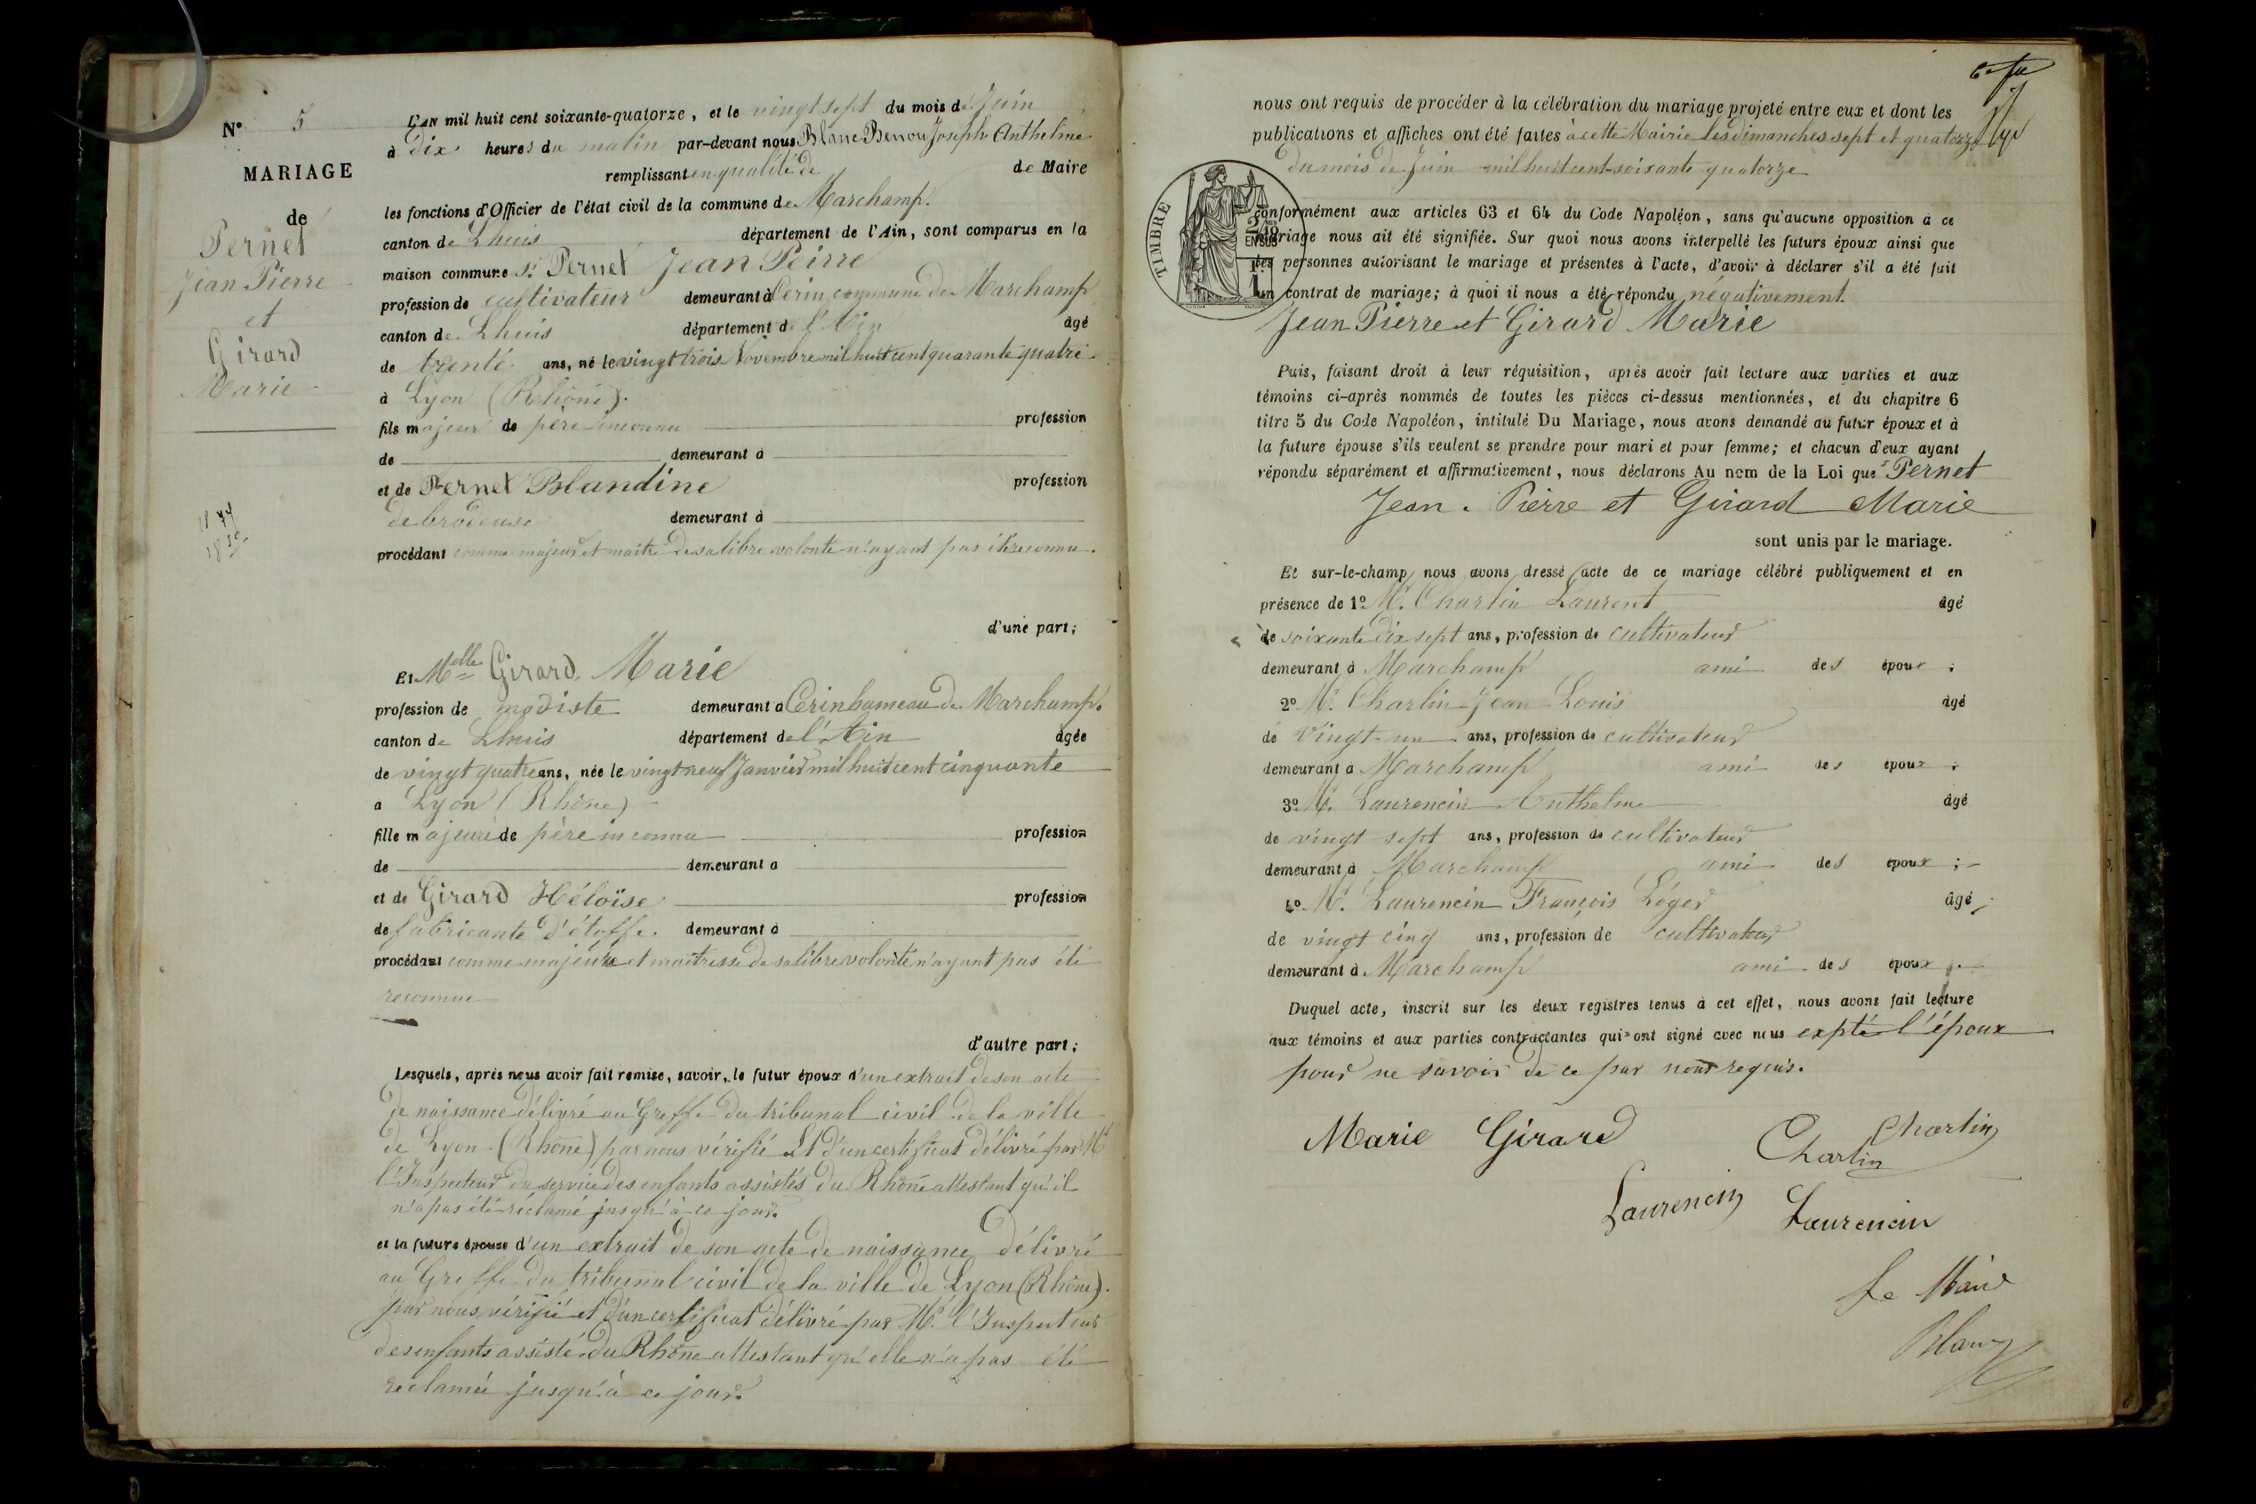 N° 5
MARIAGE
de
Pernet
Jean Pierre
et
Girard
Marie
L'AN mil huit cent soixante-quatorze, et le vingt sept du mois de Juin
à dix heures du matin par-devant nous Blanc Benoit Joseph Anthelme
remplissant en qualité de de Maire
les fonctions d'Officier de l'état civil de la commune de Marchamp.
canton de Lhuis département de l'Ain, sont comparus en la
maison commune Sr Pernet Jean Peirre
profession de cultivateur demeurant à Cerin commune de Marchamp
canton de Lhuis département de l'Ain âgé
de trente ans, né le vingt trois Novembre mil huit cent quarante quatre
à Lyon (Rhône).
fils majeur de père inconnu profession
de demeurant à
et de Pernet Blandine profession
de brodeuse demeurant à
procédant comme majeur et maitre de sa libre volonté n'ayant pas été reconnu.
d'une part;
Et Melle Girard Marie
profession de modiste demeurant à Cerin hameau de Marchamp.
canton de Lhuis département de l'Ain âgée
de vingt quatre ans, née le vingt neuf Janvier mil huit cent cinquante
a Lyon (Rhône)
fille majeure de père inconnu profession
de demeurant a
et de Girard Héloïse profession
de fabricante d'étoffe. demeurant à
procédant comme majeure et maitresse de sa libre volonté n'ayant pas été
reconnue
d'autre part;
Lesquels, après nous avoir fait remise, savoir, le futur époux d'un extrait de son acte
de naissance délivré au Greffe du tribunal civil de la ville
de Lyon (Rhône) par nous vérifié Et d'un certificat délivré par Mr
l'Inspecteur du service des enfants assistés du Rhône attestant qu'il
n'a pas été réclamé jusqu'à ce jour.
et la future épouse d'un extrait de son acte de naissance délivré
au Greffe du tribunal civil de la ville de Lyon (Rhône).
par nous vérifié et d'un certificat délivré par Mr. l'Inspecteur
des enfants assisté du Rhône attestant qu'elle n'a pas été
reclamée jusqu'à ce jour.
nous ont requis de procéder à la célébration du mariage projeté entre eux et dont les
publications et affiches ont été faites à cette Mairie les dimanches sept et quatorze
du mois de Juin mil huit cent soixante quatorze
TIMBRE
conformément aux articles 63 et 64 du Code Napoléon, sans qu'aucune opposition à ce
mariage nous ait été signifiée. Sur quoi nous avons interpellé les futurs époux ainsi que
EN SUS
les personnes autorisant le mariage et présentes à l'acte, d'avoir à déclarer s'il a été fait
un contrat de mariage; à quoi il nous a été répondu négativement.
Jean Pierre et Girard Marie
Puis, faisant droit à leur réquisition, après avoir fait lecture aux parties et aux
témoins ci-après nommés de toutes les pièces ci-dessus mentionnées, et du chapitre 6
titre 5 du Code Napoléon, intitulé Du Mariage, nous avons demandé au futur époux et à
la future épouse s'ils veulent se prendre pour mari et pour femme; et chacun d'eux ayant
répondu séparément et affirmativement, nous déclarons Au nom de la Loi que Pernet
Jean. Pierre et Girard Marie
sont unis par le mariage.
Et sur-le-champ nous avons dressé acte de ce mariage célébré publiquement et en
présence de 1° Mr. Charlin Laurent âgé
de soixante dix sept ans, profession de cultivateur
demeurant à Marchamp ami des époux;
2° Mr. Charlin Jean Louis âgé
de Vingt-un ans, profession de cultivateur
demeurant a Marchamp ami des époux;
3° Mr. Laurencin Anthelme âgé
de vingt sept ans, profession de cultivateur
demeurant à Marchamp ami des époux;
4° Mr. Laurencin François Léger âgé
de vingt cinq ans, profession de cultivateur
demeurant à Marchamp ami des époux.
Duquel acte, inscrit sur les deux registres tenus à cet effet, nous avons fait lecture
aux témoins et aux parties contractantes qui ont signé avec nous expté l'époux
pour ne savoir de ce par nous requis.
Marie Girard Charlin
Charlin
Laurencin Laurencin
Le Maire
Blanc